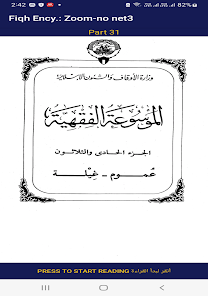 2:42
82%
Fiqh Ency.: Zoom-no net3
Part 31
وزارة الأوقاف والشئون الإسلامية
الموسوعة الفقهية
الجزء الحادى والثلاثون
عموم - غيلة
PRESS TO START READING أنقر لبدأ القراءة